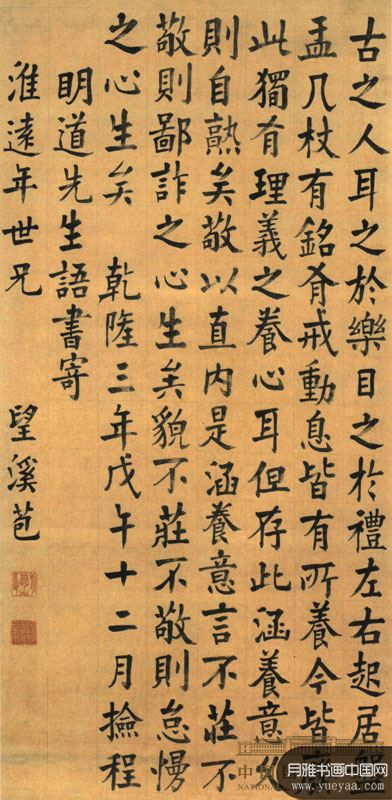 古之人耳之於樂目之於禮左右起居盤
盂几杖有銘有戒動息皆有所養今皆
此獨有理義之養心耳但存此涵養意久
則自熟矣敬以直内是涵養意言不莊不
敬則鄙詐之心生矣貌不莊不敬則怠慢
之心生矣 乾隆三年戊午十二月撿程
明道先生語書寄
淮遠年世兄 望溪苞
中
NATIONAL
月雅书画中国网
www.yueyaa.com